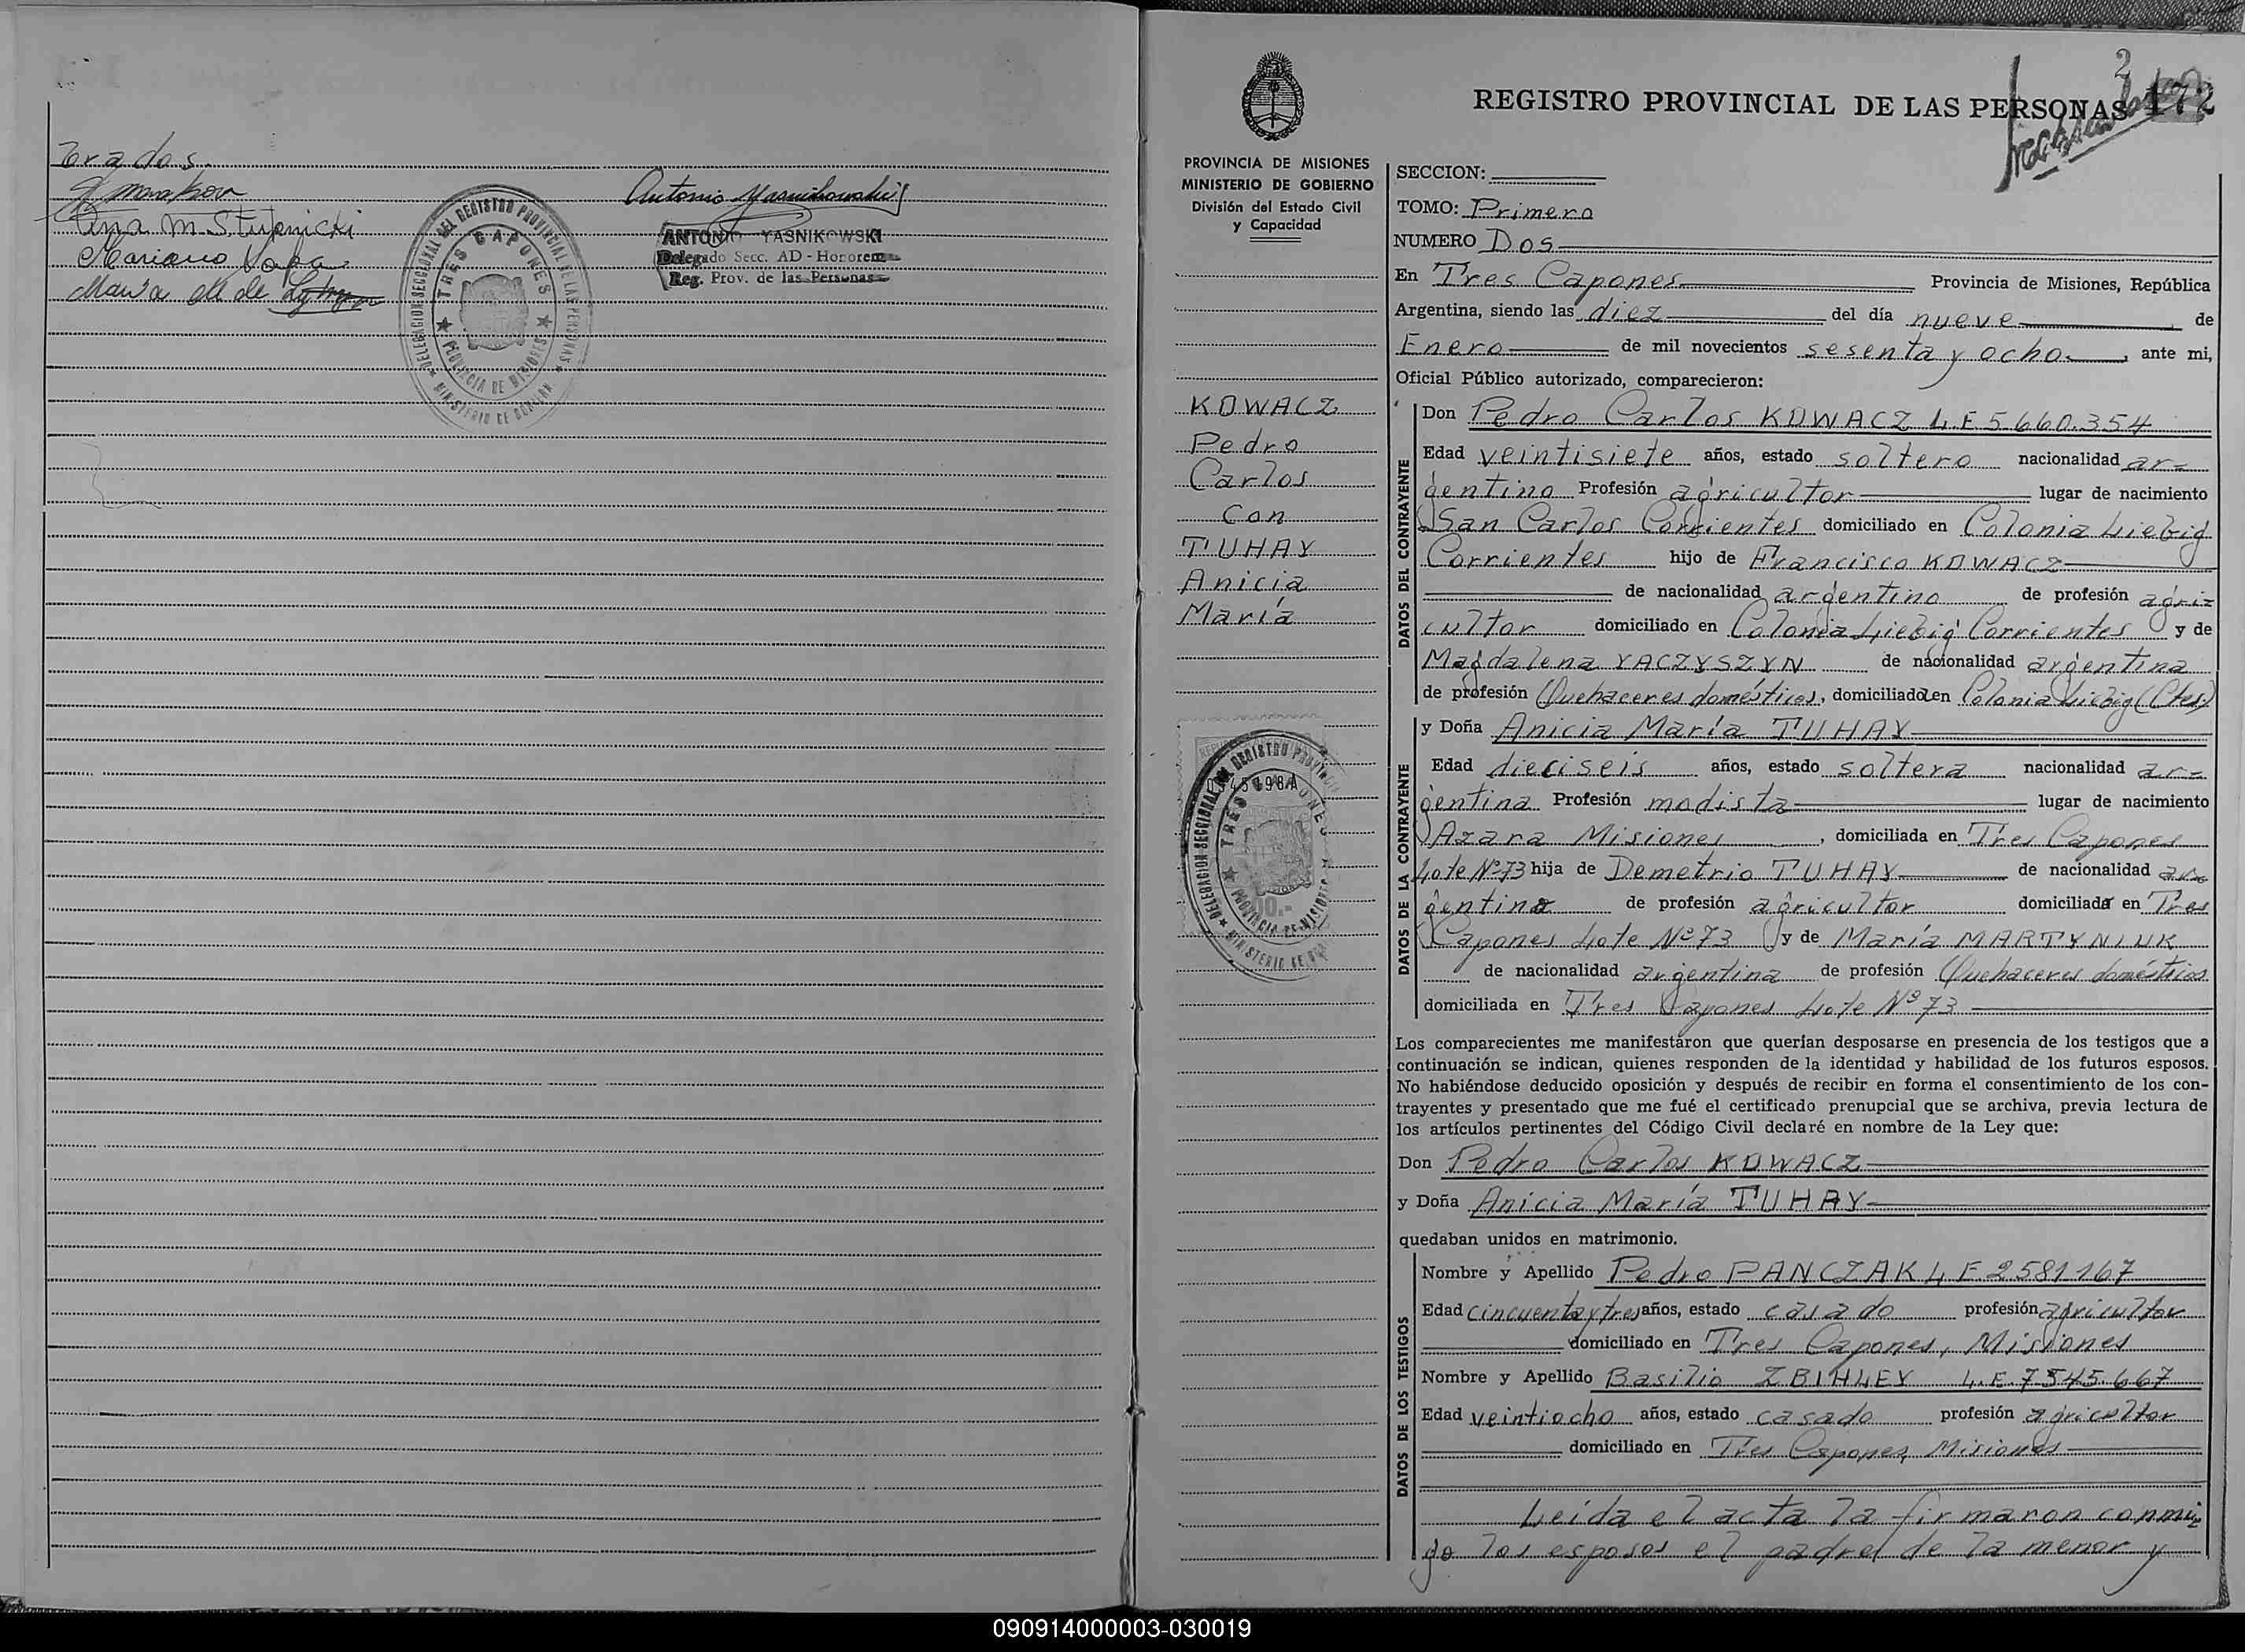 torados.
Ana M. Stupnicki
Mariano
María M. de
Antonio Yasnikowski
ANTONIO YASNIKOWSKI
Delegado Secc. AD - Honorem
Reg. Prov. de las Personas
DELEGACION SECCIONAL DEL REGISTRO PROVINCIAL DE LAS PERSONAS
TRES CAPONES
PROVINCIA DE MISIONES
MINISTERIO DE GOBIERNO
2
REGISTRO PROVINCIAL DE LAS PERSONAS 172
PROVINCIA DE MISIONES
MINISTERIO DE GOBIERNO
División del Estado Civil
y Capacidad
KOWACZ
Pedro
Carlos
con
TUHAY
Anicia
María
DELEGACION SECCIONAL DEL REGISTRO PROVINCIAL
TRES CAPONES
PROVINCIA DE MISIONES
MINISTERIO DE
SECCION:
TOMO: Primero
NUMERO Dos
En Tres Capones Provincia de Misiones, República
Argentina, siendo las diez del día nueve de
Enero de mil novecientos sesenta y ocho, ante mi,
Oficial Público autorizado, comparecieron:
DATOS DEL CONTRAYENTE
Don Pedro Carlos KOWACZ L.E 5.660.354
Edad veintisiete años, estado soltero nacionalidad ar=
gentino Profesión agricultor lugar de nacimiento
San Carlos Corrientes domiciliado en Colonia Liebig
Corrientes hijo de Francisco KOWACZ
de nacionalidad argentino de profesión agri=
cultor domiciliado en Colonia Liebig Corrientes y de
Magdalena YACZYSZYN de nacionalidad argentina
de profesión Quehaceres domésticos, domiciliada en Colonia Liebig (Ctes)
DATOS DE LA CONTRAYENTE
y Doña Anicia María TUHAY
Edad dieciseis años, estado soltera nacionalidad ar=
gentina Profesión modista lugar de nacimiento
Azara Misiones, domiciliada en Tres Capones
Lote Nº 73 hija de Demetrio TUHAY de nacionalidad ar=
gentino de profesión agricultor domiciliado en Tres
Capones Lote Nº 73 y de María MARTYNIUK
de nacionalidad argentina de profesión Quehaceres domésticos
domiciliada en Tres Capones Lote Nº 73
Los comparecientes me manifestaron que querían desposarse en presencia de los testigos que a
continuación se indican, quienes responden de la identidad y habilidad de los futuros esposos.
No habiéndose deducido oposición y después de recibir en forma el consentimiento de los con-
trayentes y presentado que me fué el certificado prenupcial que se archiva, previa lectura de
los artículos pertinentes del Código Civil declaré en nombre de la Ley que:
Don Pedro Carlos KOWACZ
y Doña Anicia María TUHAY
quedaban unidos en matrimonio.
DATOS DE LOS TESTIGOS
Nombre y Apellido Pedro PANCZAK L E 2581167
Edad cincuenta y tres años, estado casado profesión agricultor
domiciliado en Tres Capones, Misiones
Nombre y Apellido Basilio ZBIHLEY L.E. 7545.667
Edad veintiocho años, estado casado profesión agricultor
domiciliado en Tres Capones, Misiones
Leída el acta la firmaron conmi=
go los esposos el padre de la menor y
090914000003-030019